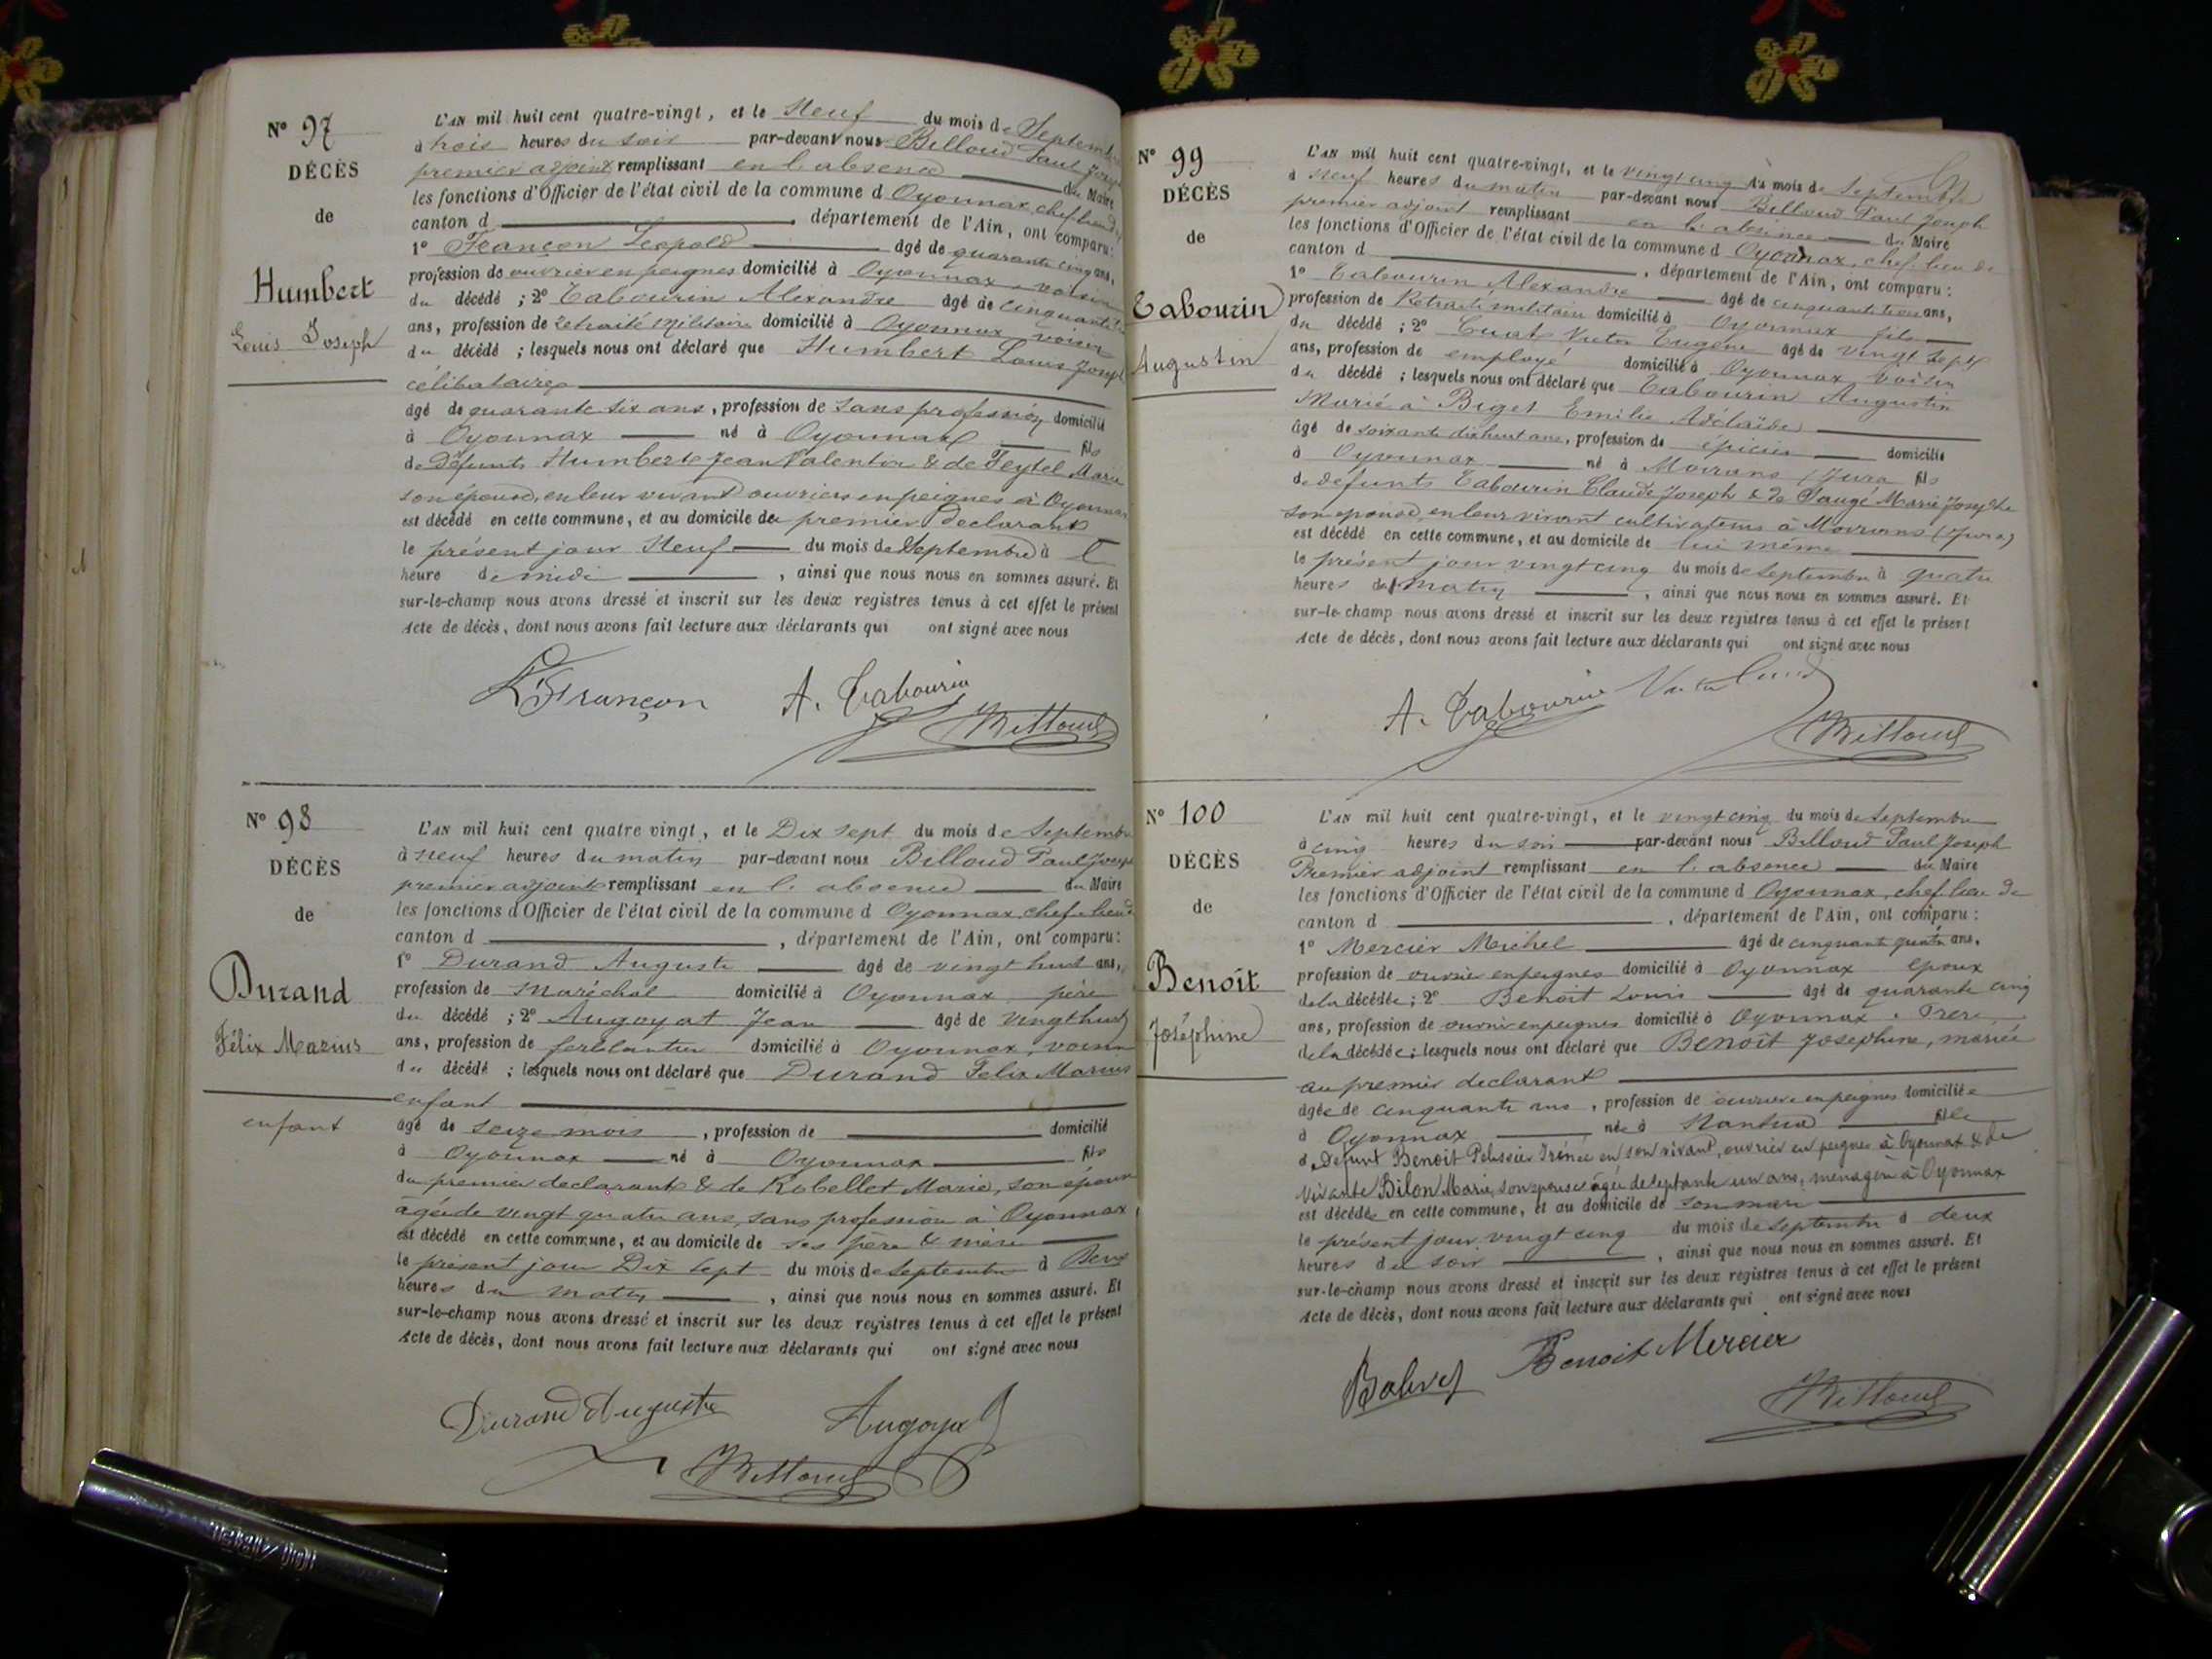 N° 97
DÉCÈS
de
Humbert
Louis Joseph
L'AN mil huit cent quatre-vingt, et le Neuf du mois de Septembre
à trois heures du soir par-devant nous Billoud Paul Joseph
premier adjoint remplissant en l'absence du Maire
les fonctions d'Officier de l'état civil de la commune d Oyonnax, chef lieu de
canton d , département de l'Ain, ont comparu:
1° Françon Leopold âgé de quarante cinq ans,
profession de ouvrier en peignes domicilié à Oyonnax voisin
du décédé ; 2° Tabourin Alexandre âgé de cinquante
ans, profession de retraité militaire domicilié à Oyonnax voisin
du décédé ; lesquels nous ont déclaré que Humbert Louis Joseph
célibataire
âgé de quarante six ans, profession de sans profession domicilié
à Oyonnax né à Oyonnax fils
de défunts Humbert Jean Valentin & de Feytel Marie
son épouse, en leur vivant ouvriers en peignes à Oyonnax
est décédé en cette commune, et au domicile du premier Declarant
le présent jour Neuf du mois de Septembre à
heure de midi , ainsi que nous nous en sommes assuré. Et
sur-le-champ nous avons dressé et inscrit sur les deux registres tenus à cet effet le présent
Acte de décès, dont nous avons fait lecture aux déclarants qui ont signé avec nous
L. Françon A. Tabourin
Billoud
N° 98
DÉCÈS
de
Durand
Félix Marius
enfant
L'AN mil huit cent quatre vingt, et le Dix sept du mois de Septembre
à neuf heures du matin par-devant nous Billoud Paul Joseph
premier adjoint remplissant en l'absence du Maire
les fonctions d'Officier de l'état civil de la commune d Oyonnax, chef lieu de
canton d , département de l'Ain, ont comparu:
1° Durand Auguste âgé de vingt huit ans,
profession de Maréchal domicilié à Oyonnax père
du décédé ; 2° Augoyat Jean âgé de vingt huit
ans, profession de ferblantier domicilié à Oyonnax, voisin
du décédé ; lesquels nous ont déclaré que Durand Felix Marius
enfant
âgé de seize mois , profession de domicilié
à Oyonnax né à Oyonnax fils
du premier declarant & de Robellet Marie, son épouse
âgée de vingt quatre ans, sans profession à Oyonnax
est décédé en cette commune, et au domicile de ses père & mère
le présent jour Dix sept du mois de Septembre à
heures du matin , ainsi que nous nous en sommes assuré. Et
sur-le-champ nous avons dressé et inscrit sur les deux registres tenus à cet effet le présent
Acte de décès, dont nous avons fait lecture aux déclarants qui ont signé avec nous
Durand Auguste Augoyat
Billoud
N° 99
DÉCÈS
de
Tabourin
Augustin
L'AN mil huit cent quatre-vingt, et le vingt cinq du mois de Septembre
à neuf heures du matin par-devant nous Billoud Paul Joseph
premier adjoint remplissant en l'absence du Maire
les fonctions d'Officier de l'état civil de la commune d Oyonnax, chef-lieu de
canton d , département de l'Ain, ont comparu:
1° Tabourin Alexandre âgé de cinquante trois ans,
profession de Retraité militaire domicilié à Oyonnax fils
du décédé ; 2° Cuat Victor Eugène âgé de vingt sept
ans, profession de employé domicilié à Oyonnax voisin
du décédé ; lesquels nous ont déclaré que Tabourin Augustin
Marié à Biget Emilie Adélaïde
âgé de soixante dix huit ans, profession de épicier domicilié
à Oyonnax né à Moirans (Jura fils
de défunts Tabourin Claude Joseph & de Saugé Marie Josephte
son epouse, en leur vivant cultivateurs à Moirans (Jura)
est décédé en cette commune, et au domicile de lui même
le présent jour vingt cinq du mois de Septembre à quatre
heures du matin , ainsi que nous nous en sommes assuré. Et
sur-le-champ nous avons dressé et inscrit sur les deux registres tenus à cet effet le présent
Acte de décès, dont nous avons fait lecture aux déclarants qui ont signé avec nous
A. Tabourin
Billoud
N° 100
DÉCÈS
de
Benoît
Joséphine
L'AN mil huit cent quatre-vingt, et le vingt cinq du mois de Septembre
à cinq heures du soir par-devant nous Billoud Paul Joseph
Premier adjoint remplissant en l'absence du Maire
les fonctions d'Officier de l'état civil de la commune d Oyonnax, chef-lieu de
canton d , département de l'Ain, ont comparu:
1° Mercier Michel âgé de cinquante quatre ans,
profession de ouvrier en peignes domicilié à Oyonnax epoux
de la décédée ; 2° Benoit Louis âgé de quarante cinq
ans, profession de ouvrier en peignes domicilié à Oyonnax . Frere
de la décédée ; lesquels nous ont déclaré que Benoît Josephine, mariée
au premier declarant
âgée de cinquante ans , profession de ouvrière en peignes domiciliée
à Oyonnax née à Nantua fille
de Défunt Benoit Pelissier Irénée en son vivant, ouvrier en peignes à Oyonnax & de
vivante Bilon Marie, son epouse âgée de septante un ans, ménagère à Oyonnax
est décédée en cette commune, et au domicile de son mari
le présent jour vingt cinq du mois de Septembre à deux
heures du soir , ainsi que nous nous en sommes assuré. Et
sur-le-champ nous avons dressé et inscrit sur les deux registres tenus à cet effet le présent
Acte de décès, dont nous avons fait lecture aux déclarants qui ont signé avec nous
Benoit Mercier
Billoud